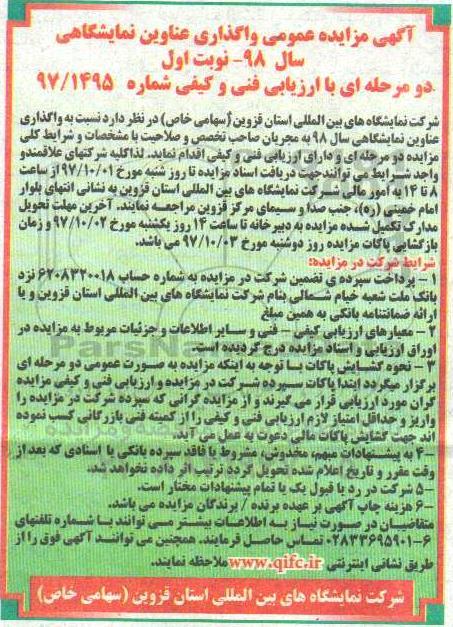 آگهی مزایده عمومی واگذاری عناوین نمایشگاهی
سال ۹۸- نوبت اول
دو مرحله ای با ارزیابی فنی و کیفی شماره ۹۷/۱۴۹۵
شرکت نمایشگاه های بین المللی استان قزوین (سهامی خاص) در نظر دارد نسبت به واگذاری
عناوین نمایشگاهی سال ۹۸ به مجریان صاحب تخصص و صلاحیت با مشخصات و شرایط کلی
مزایده دو مرحله ای و دارای ارزیابی فنی و کیفی اقدام نماید. لذا کلیه شرکتهای علاقمند و
واجد شرایط می توانند جهت دریافت اسناد مزایده تا روز شنبه مورخ ۹۷/۱۰/۰۱ از ساعت
۸ تا ۱۴ به امور مالی شرکت نمایشگاه های بین المللی استان قزوین به نشانی انتهای بلوار
امام خمینی (ره)، جنب صدا و سیمای مرکز قزوین مراجعه نمایند. آخرین مهلت تحویل
مدارک تکمیل شده مزایده به دبیرخانه تا ساعت ۱۴ روز یکشنبه مورخ ۹۷/۱۰/۰۲ و زمان
بازگشایی پاکات مزایده روز دوشنبه مورخ ۹۷/۱۰/۰۳ می باشد.
شرایط شرکت در مزایده:
۱- پرداخت سپرده ی تضمین شرکت در مزایده به شماره حساب ۶۲۰۸۳۳۰۰۱۸ نزد
بانک ملت شعبه خیام شمالی بنام شرکت نمایشگاه های بین المللی استان قزوین و یا
ارائه ضمانتنامه بانکی به همین مبلغ
۲- معیارهای ارزیابی کیفی - فنی و سایر اطلاعات و جزئیات مربوط به مزایده در
اوراق ارزیابی و اسناد مزایده درج گردیده است.
۳- نحوه گشایش پاکات با توجه به اینکه مزایده به صورت عمومی دو مرحله ای
برگزار میگردد ابتدا پاکات سپرده شرکت در مزایده و ارزیابی فنی و کیفی مزایده
گران مورد ارزیابی قرار می گیرند و از مزایده گرانی که سپرده شرکت در مزایده را
واریز و حداقل امتیاز لازم ارزیابی فنی و کیفی را از کمیته فنی بازرگانی کسب نموده
اند جهت گشایش پاکات مالی دعوت به عمل می آید.
۴- به پیشنهادات مبهم، مخدوش، مشروط یا فاقد سپرده بانکی یا اسنادی که بعد از
وقت مقرر و تاریخ اعلام شده تحویل گردد ترتیب اثر داده نخواهد شد.
۵- شرکت در رد یا قبول یک یا تمام پیشنهادات مختار است.
۶- هزینه چاپ آگهی بر عهده برنده / برندگان مزایده می باشد.
متقاضیان در صورت نیاز به اطلاعات بیشتر می توانند با شماره تلفنهای
۰۲۸۳۳۶۹۵۹۰۱-۶ تماس حاصل فرمایند. همچنین می توانند آگهی فوق را از
طریق نشانی اینترنتی www.qifc.ir ملاحظه نمایند.
شرکت نمایشگاه های بین المللی استان قزوین (سهامی خاص)